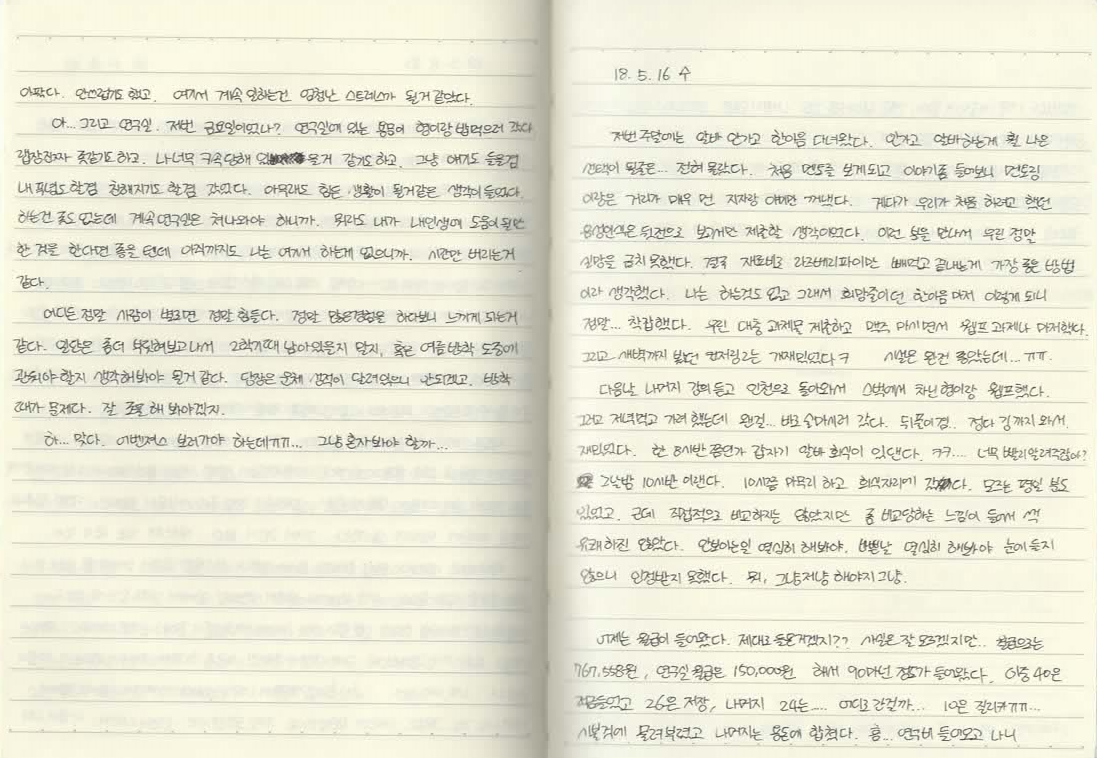 아팠다. 안쓰럽기도 했고. 여기서 계속 일하는건 엄청난 스트레스가 될거 같았다.
아... 그리고 연구실. 저번 금요일이었나? 연구실에 있는 형이랑 밥먹으러 갔다.
같기도하고. 나 너무 구속당해 있 을거 같기도 하고. 그냥 얘기도 들을겸
내 푸념도 할겸 친해지기도 할겸 갔었다. 아무래도 힘든 생활이 될거같은 생각이 들었다.
하는건 도 없는데 계속 연구실은 쳐나와야 하니까. 뭐라도 내가 내인생에 도움이 될만
한 것을 한다면 좋을 텐데 아직까지도 나는 여기서 하는게 없으니까. 시간만 버리는거
같다.
어디든 정말 사람이 별로면 정말 힘들다. 정말 많은경험을 하다보니 느끼게 되는거
같다. 일단은 좀더 부딪혀보고나서 2학기때 남아있을지 말지, 혹은 여름방학 도중에
관둬야 할지 생각해봐야 될거 같다. 당장은 문제 성적이 달려있으니 안되겠고. 방학
때가 문제다. 잘 조율 해 봐야겠지.
하... 맞다. 어벤져스 보러가야 하는데ㅠㅠ... 그냥 혼자 봐야 할까...
18. 5. 16 수
저번 주말에는 알바 안가고 한이음 다녀왔다. 안가고 알바하는게 훨 나은
선택이 될줄은... 전혀 몰랐다. 처음 멘토를 보게되고 이야기를 들어보니 멘토링
이랑은 거리가 매우 먼 지자랑 얘기만 꺼냈다. 게다가 우리가 처음 하려고 했던
음성인식은 뒷전으로 보고서만 제출할 생각이었다. 이런 분을 만나서 우린 정말
실망을 금치 못했다. 결국 재료비로 라즈베리파이만 빼먹고 끝내는게 가장 좋은 방법
이라 생각했다. 나는 하는것도 없고 그래서 희망줄이던 한이음 마저 이렇게 되니
정말... 착잡했다. 우린 대충 과제물 제출하고 맥주 마시면서 웹프 과제나 마저했다.
그리고 새벽까지 봤던 컨저링2는 개재밌었다ㅋ 시설은 완전 좋았는데... ㅠㅠ.
다음날 나머지 강의 듣고 인천으로 돌아와서 스벅에서 차닌형이랑 웹프했다.
그리고 저녁먹고 가려 했는데 웬걸... 바로 술마시러 갔다. 뒤풀이겸.. 정다 까지 와서.
재밌었다. 한 8시반 쯤인가 갑자기 알바 회식이 있댄다. ㅋㅋ.... 너무 빨리알려주잖아?
그날밤 10시반 이랜다. 10시쯤 마무리 하고 회식자리에 갔다. 모르는 평일 분도
있었고. 근데 직접적으로 비교하지는 않았지만 좀 비교당하는 느낌이 들어서 썩
유쾌하진 않았다. 안보이는일 열심히 해봐야, 백날 열심히 해봐야 눈에 띄지
않으니 인정받지 못했다. 뭐, 그냥저냥 해야지 그냥.
어제는 월급이 들어왔다. 제대로 들어온거겠지?? 사실은 잘 모르겠지만... 월급으로는
767,558원, 연구실 월급은 150,000원 해서 90여만원 정도가 들어왔다. 이중 40은
적금들었고 26은 저장, 나머지 24는.... 어디로 간걸까... 10은 질러ㅠㅠㅠ...
물려버렸고 나머지는 용돈에 합쳤다. 흠... 연구비 들어오고 나니